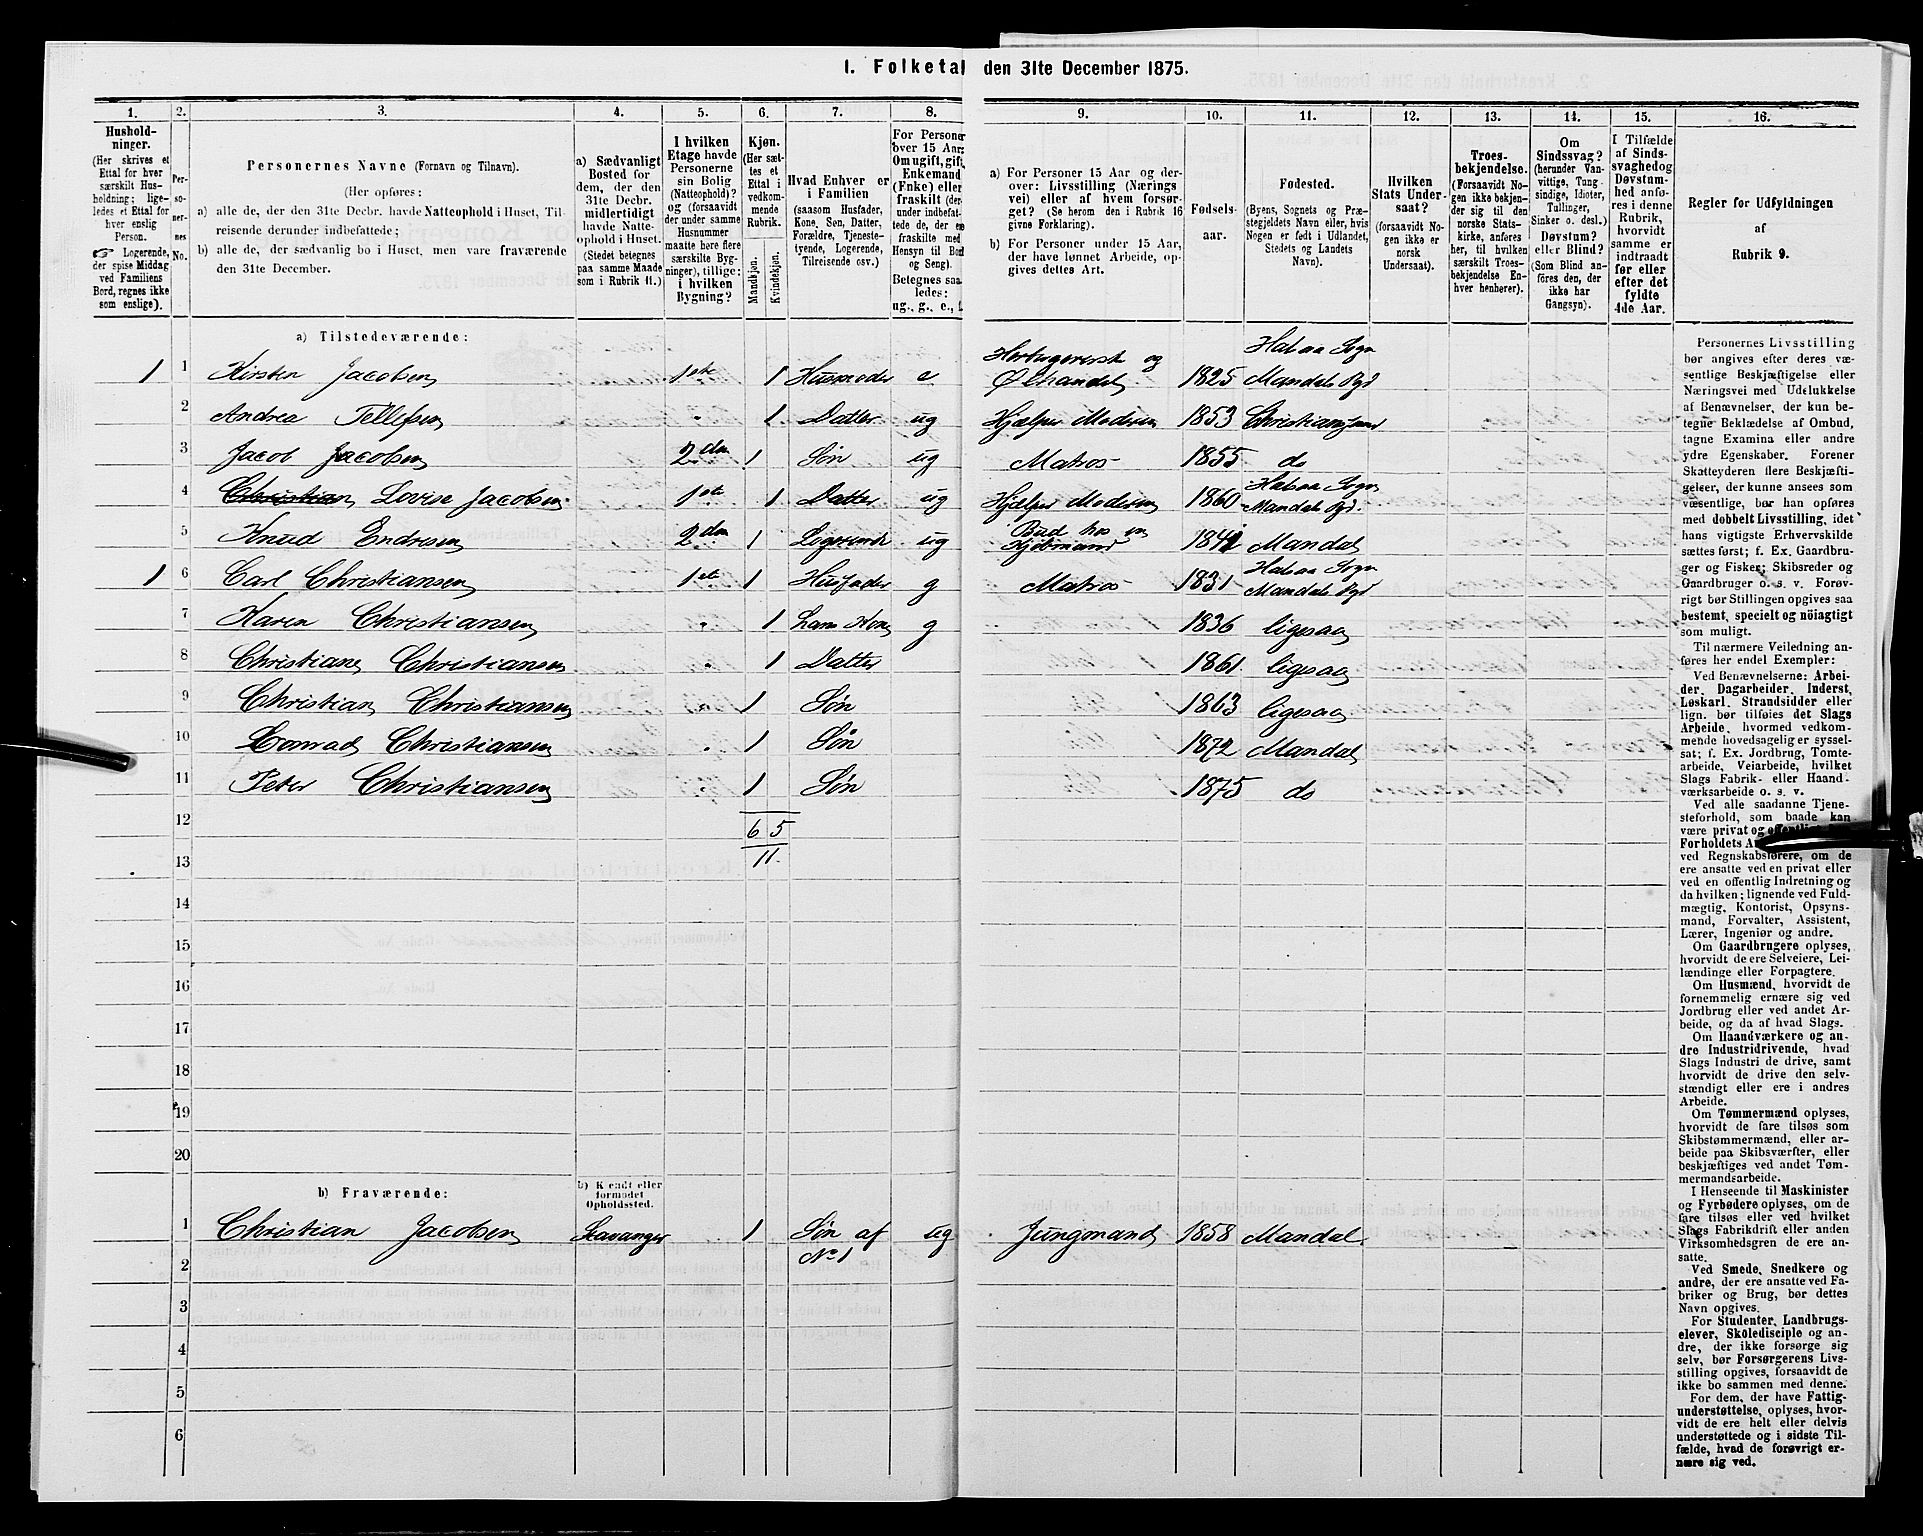 1. Folketal den 31te December 1875.
1. 2. 3. 4. 5. 6. 7. 8. 9. 10. 11. 12. 13. 14. 15. 16.
Hushold-
ninger.
(Her skrives et
Ettal for hver
særskilt Hus-
holdning; lige-
ledes et Ettal for
hver enslig
Person.
☞ Logerende,
der spise Middag
ved Familiens
Bord, regnes ikke
som enslige).
Per-
so-
ner-
nes
No.
Personernes Navne (Fornavn og Tilnavn).
(Her opføres:
a) alle de, der den 31te Decbr. havde Natteophold i Huset, Til-
reisende derunder indbefattede;
b) alle de, der sædvanlig bo i Huset, men vare fraværende
den 31te December.
a) Sædvanligt
Bosted for
dem, der den
31te Decbr.
midlertidigt
havde Natte-
ophold i Huset.
(Stedet betegnes
paa samme Maade
som i Rubrik 11.)
I hvilken
Etage havde
Personerne
sin Bolig
(Natteophold)?
og (forsaavidt
der under samme
Husnummer
maatte høre flere
særskilte Byg-
ninger), tillige:
i hvilken
Bygning?
Kjøn.
(Her sæt-
tes et
Ettal i
vedkom-
mende
Rubrik.
Mandkjøn.
Kvindekjøn.
Hvad Enhver er
i Familien
(saasom Husfader,
Kone, Søn, Datter,
Forældre, Tjeneste-
tyende, Logerende,
Tilreisende osv.)
For Personer
over 15 Aar:
Om ugift, gift,
Enkemand
(Enke) eller
fraskilt (der-
under indbefat-
tede de, der ere
fraskilte med
Hensyn til Bord
og Seng).
Betegnes saa-
ledes:
ug., g., e.,
a) For Personer 15 Aar og der-
over: Livsstilling (Nærings
vei) eller af hvem forsør-
get? (Se herom den i Rubrik 16
givne Forklaring).
b) For Personer under 15 Aar,
der have lønnet Arbeide, op-
gives dettes Art.
Fødsels-
aar.
Fødested.
(Byens, Sognets og Præ-
stegjeldets Navn eller, hvis
Nogen er født i Udlandet,
Stedets og Landets
Navn).
Hvilken
Stats Under-
saat?
(forsaavidt No-
gen ikke er
norsk
Undersaat).
Troes-
bekjendelse.
(Forsaavidt No-
gen ikke bekjen-
der sig til den
norske Stats-
kirke, anføres
her, til hvilken
særskilt Troes-
bekjendelse En-
hver henhører).
Om
Sindssvag?
(herunder Van-
vittige, Tung-
sindige, Idioter,
Tullinger,
Sinker o. desl.)
Døvstum?
eller Blind?
(Som Blind an-
føres den, der
ikke har
Gangsyn).
I Tilfælde
af Sinds-
svaghed og
Døvstum-
hed anfø-
res i denne
Rubrik,
hvorvidt
samme er
indtraadt
før eller
efter det
fyldte
4de Aar.
Regler for Udfyldningen
af
Rubrik 9.
a) Tilstedeværende:
1 1 Kirsten Jacobsen 1ste 1 Husmoder e Herbergererske og Ølhandel 1825 Halsaa Sogn Mandals Pgd
2 Andrea Tellefsen " 1 Datter ug Hjælper Moderen 1853 Christianssand
3 Jacob Jacobsen 2den 1 Søn ug Matros 1855 do
4 Christian Lovise Jacobsen 1ste 1 Datter ug Hjælper Moderen 1860 Halsaa Sogn Mandals Pgd.
5 Knud Endresen 2den 1 Logerende ug Bud hos en Kjøbmand 1841 Mandal
1 6 Carl Christiansen 1ste 1 Husfader g Matros 1831 Halsaa Sogn Mandals Pgd
7 Karen Christiansen " 1 hans Kone g 1836 ligesaa
8 Christiane Christiansen " 1 Datter 1861 ligesaa
9 Christian Christiansen " 1 Søn 1863 ligesaa
10 Conrad Christiansen " 1 Søn 1872 Mandal
11 Peter Christiansen " 1 Søn 1875 do
12 6 5
13 11.
14
15
16
17
18
19
20
b) Fraværende:
b) Kjendt eller
formodet
Opholdssted.
1 Christian Jacobsen Stavanger 1 Søn af No 1 ug Jungmand 1858 Mandal.
2
3
4
5
6
Personernes Livsstilling
bør angives efter deres væ-
sentlige Beskjæftigelse eller
Næringsvei med Udelukkelse
af Benævnelser, der kun be-
tegne Beklædelse af Ombud,
tagne Examina eller andre
ydre Egenskaber. Forener
Skatteyderen flere Beskjæfti-
gelser, der kunne ansees som
væsentlige, bør han opføres
med dobbelt Livsstilling, idet
hans vigtigste Erhvervskilde
sættes først; f. Ex. Gaardbru-
ger og Fisker; Skibsreder og
Gaardbruger o. s. v. Forøv-
rigt bør Stillingen opgives saa
bestemt, specielt og nöiagtigt
som muligt.
Til nærmere Veiledning an-
føres her endel Exempler:
Ved Benævnelserne: Arbei-
der, Dagarbeider, Inderst,
Løskarl, Strandsidder eller
lign. bør tilføies det Slags
Arbeide, hvormed vedkom-
mende hovedsagelig er syssel-
sat; f. Ex. Jordbrug, Tomte-
arbeide, Veiarbeide, hvilket
Slags Fabrik- eller Haand-
værksarbeide o. s. v.
Ved alle saadanne Tjene-
steforhold, som baade kan
være privat og offentligt,
Forholdets
ved Regnskabsførere, om de
ere ansatte ved en privat eller
ved en offentlig Indretning og
da hvilken; lignende ved Fuld-
mægtig, Kontorist, Opsyns-
mand, Forvalter, Assistent,
Lærer, Ingeniør og andre.
Om Gaardbrugere oplyses,
hvorvidt de ere Selveiere, Lei-
lændinge eller Forpagtere.
Om Husmænd, hvorvidt de
fornemmelig ernære sig ved
Jordbrug eller ved andet Ar-
beide, og da af hvad Slags.
Om Haandværkere og an-
dre Industridrivende, hvad
Slags Industri de drive, samt
hvorvidt de drive den selv-
stændigt eller ere i andres
Arbeide.
Om Tømmermænd oplyses,
hvorvidt de fare tilsøs som
Skibstømmermænd, eller ar-
beide paa Skibsværfter, eller
beskjæftiges ved andet Tøm-
mermandsarbeide.
I Henseende til Maskinister
og Fyrbødere oplyses, om de
fare tilsøs eller ved hvilket
Slags Fabrikdrift eller anden
Virksomhedsgren de ere an-
satte.
Ved Smede, Snedkere og
andre, der ere ansatte ved Fa-
briker og Brug, bør dettes
Navn opgives.
For Studenter, Landbrugs-
elever, Skölediscip​le og an-
dre, der ikke forsørge sig
selv, bør Forsørgerens Livs-
stilling opgives, forsaavidt de
ikke bo sammen med denne.
For dem, der have Fattig-
understøttelse, oplyses, hvor-
vidt de ere helt eller delvis
understøttede og i sidste Til-
fælde, hvad de forøvrigt er-
nære sig ved.